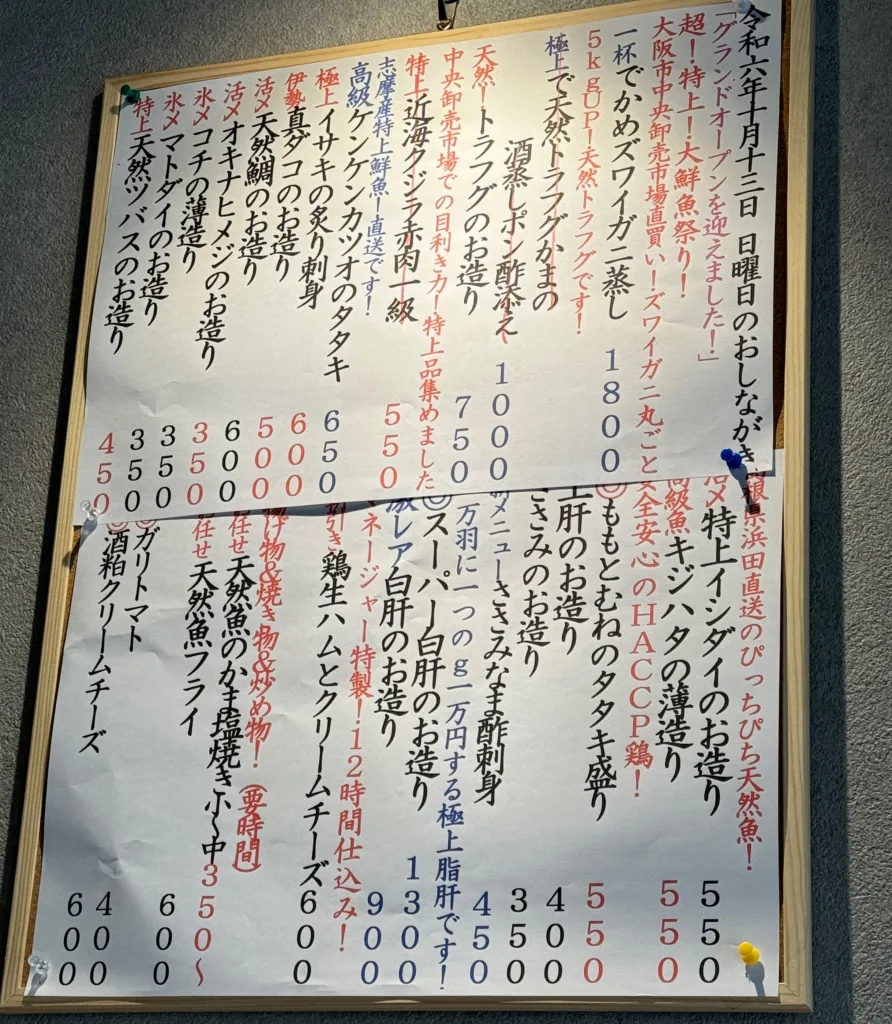 令和六年十月十三日 日曜日のおしながき
「グランドオープンを迎えました！」
超！特上！大鮮魚祭り！
大阪市中央卸売市場直買い！ズワイガニ丸ごと
一杯でかめズワイガニ蒸し 1800
5kgUP！天然トラフグです！
極上で天然トラフグかまの
酒蒸しポン酢添え 1000
天然！トラフグのお造り 750
中央卸売市場での目利き力！特上品集めました
特上近海クジラ赤肉一級 550
志摩産特上鮮魚！直送です！
高級ケンケンカツオのタタキ 650
極上イサキの炙り刺身 600
伊勢真ダコのお造り 500
活〆天然鯛のお造り 600
活〆オキナヒメジのお造り 350
氷〆コチの薄造り 350
氷〆マトダイのお造り 350
特上天然ツバスのお造り 450
根県浜田直送のぴっちぴち天然魚！
活〆特上イシダイのお造り 550
高級魚キジハタの薄造り 550
安全安心のHACCP鶏！
◎ももとむねのタタキ盛り 550
上肝のお造り 400
ささみのお造り 350
メニューささみなま酢刺身 450
一万羽に一つのg一万円する極上脂肝です！
◎スーパー白肝のお造り 1300
激レア白肝のお造り 900
マネージャー特製！12時間仕込み！
引き鶏生ハムとクリームチーズ 600
揚げ物&焼き物&炒め物！（要時間）
任せ天然魚のかま塩焼き小〜中 350〜
任せ天然魚フライ 600
◎ガリトマト 400
◎酒粕クリームチーズ 600